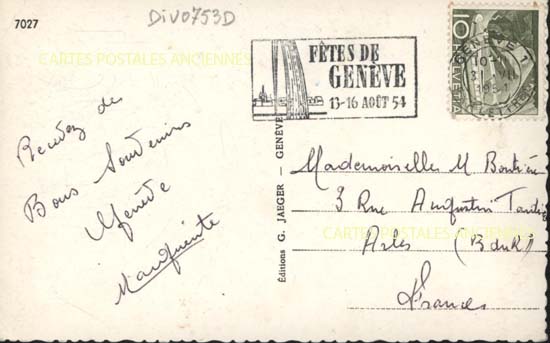 7027
DiV0753D
CARTES POSTALES ANCIENNES
FÊTES DE
GENÈVE
13-16 AOÛT 54
GENÈVE 1
10
HELVETIA
Recevez de
Bons Souvenirs
Genève
Marguerite
Éditions G. JAEGER — GENÈVE
Mademoiselle M
3 Rue Augustin
CARTES POSTALES ANCIENNES
Arles (B du R)
France